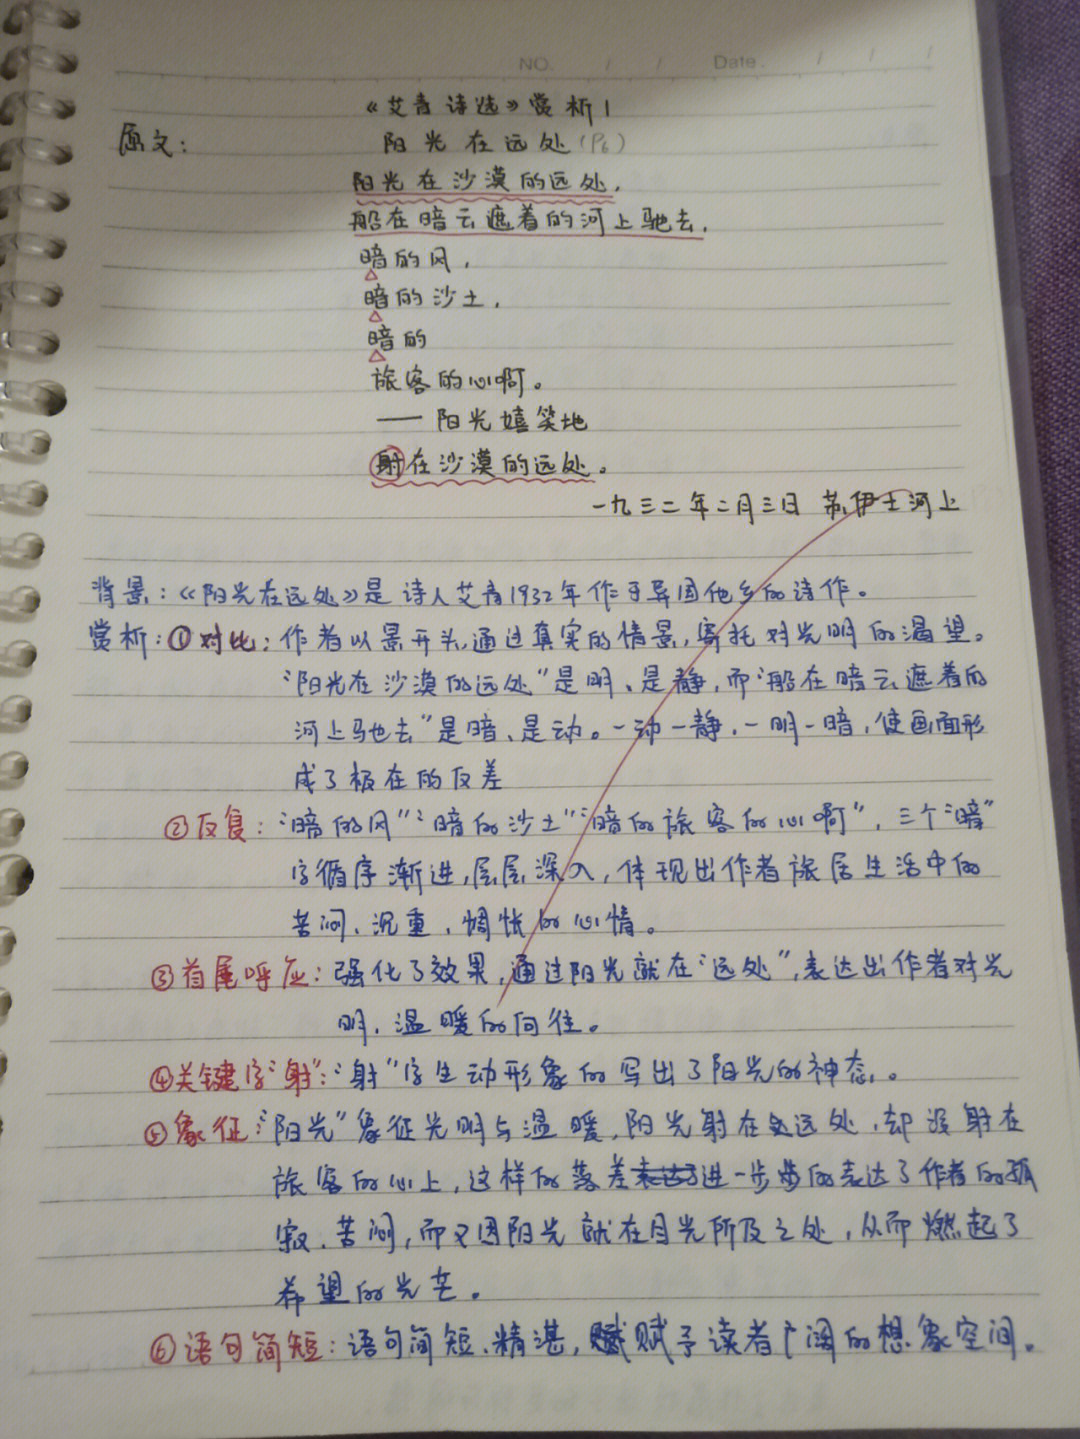 NO. / / Date. / / /
《艾青诗选》赏析1
原文: 阳光在远处(P6)
阳光在沙漠的远处,
船在暗云遮着的河上驰去,
暗的风,
暗的沙土,
暗的
旅客的心啊。
—— 阳光嬉笑地
射在沙漠的远处。
一九三二年二月三日 苏伊士河上
背景:《阳光在远处》是诗人艾青1932年作于异国他乡的诗作。
赏析:①对比:作者以景开头,通过真实的情景,寄托对光明的渴望。
“阳光在沙漠的远处”是明、是静,而“船在暗云遮着的
河上驰去”是暗、是动。一动一静,一明一暗,使画面形
成了极在的反差
②反复:“暗的风”“暗的沙土”“暗的旅客的心啊”,三个“暗”
字循序渐进,层层深入,体现出作者旅居生活中的
苦闷、沉重、惆怅的心情。
③首尾呼应:强化了效果,通过阳光就在“远处”,表达出作者对光
明、温暖的向往。
④关键字“射”:“射”字生动形象的写出了阳光的神态。
⑤象征:“阳光”象征光明与温暖,阳光射在远处,却没射在
旅客的心上,这样的落差表达了进一步步的表达了作者的孤
寂、苦闷,而又因阳光就在目光所及之处,从而燃起了
希望的光芒。
⑥语句简短:语句简短、精湛,赋赋予读者广阔的想象空间。